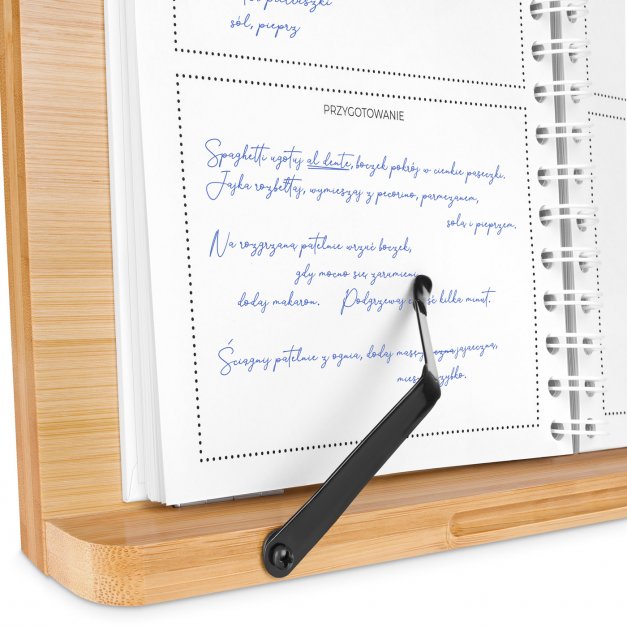 sól, pieprz
PRZYGOTOWANIE
Spaghetti ugotuj al dente, boczek pokrój w cienkie paseczki.
Jajka rozbełtaj, wymieszaj z pecorino, parmezanem,
solą i pieprzem.
Na rozgrzaną patelnie wrzuć boczek,
gdy mocno się zarumieni
dodaj makaron. Podgrzewaj kilka minut.
Ściągnij patelnie z ognia, dodaj jajeczną,